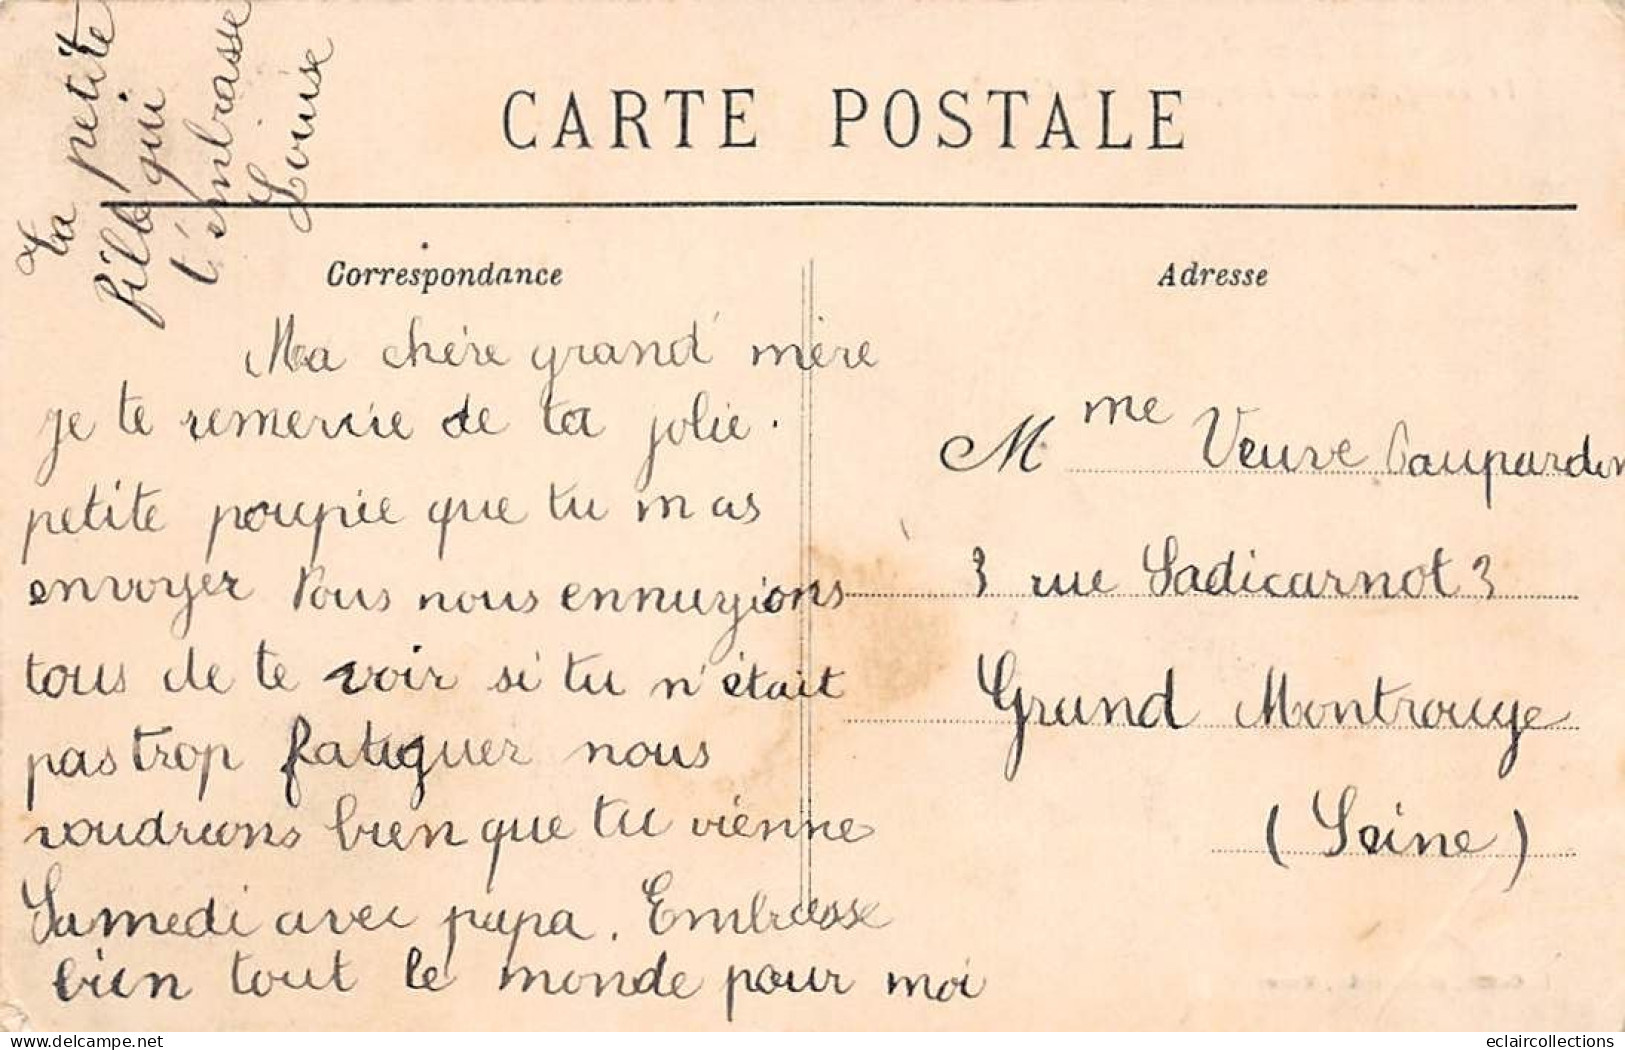 La petite
fille qui
t'embrasse
Louise
CARTE POSTALE
Correspondance
Adresse
Ma chère grand' mère
je te remercie de ta jolie.
petite poupée que tu mas
envoyer Vous nous ennuyions
tous de te voir si tu n'était
pas trop fatiguer nous
voudrions bien que tu vienne
Samedi avec papa. Embrasse
bien tout le monde pour moi
Mme Veuve
3 rue Sadicarnot 3
Grand Montrouge
(Seine)
delcampe.net
eclaircollections